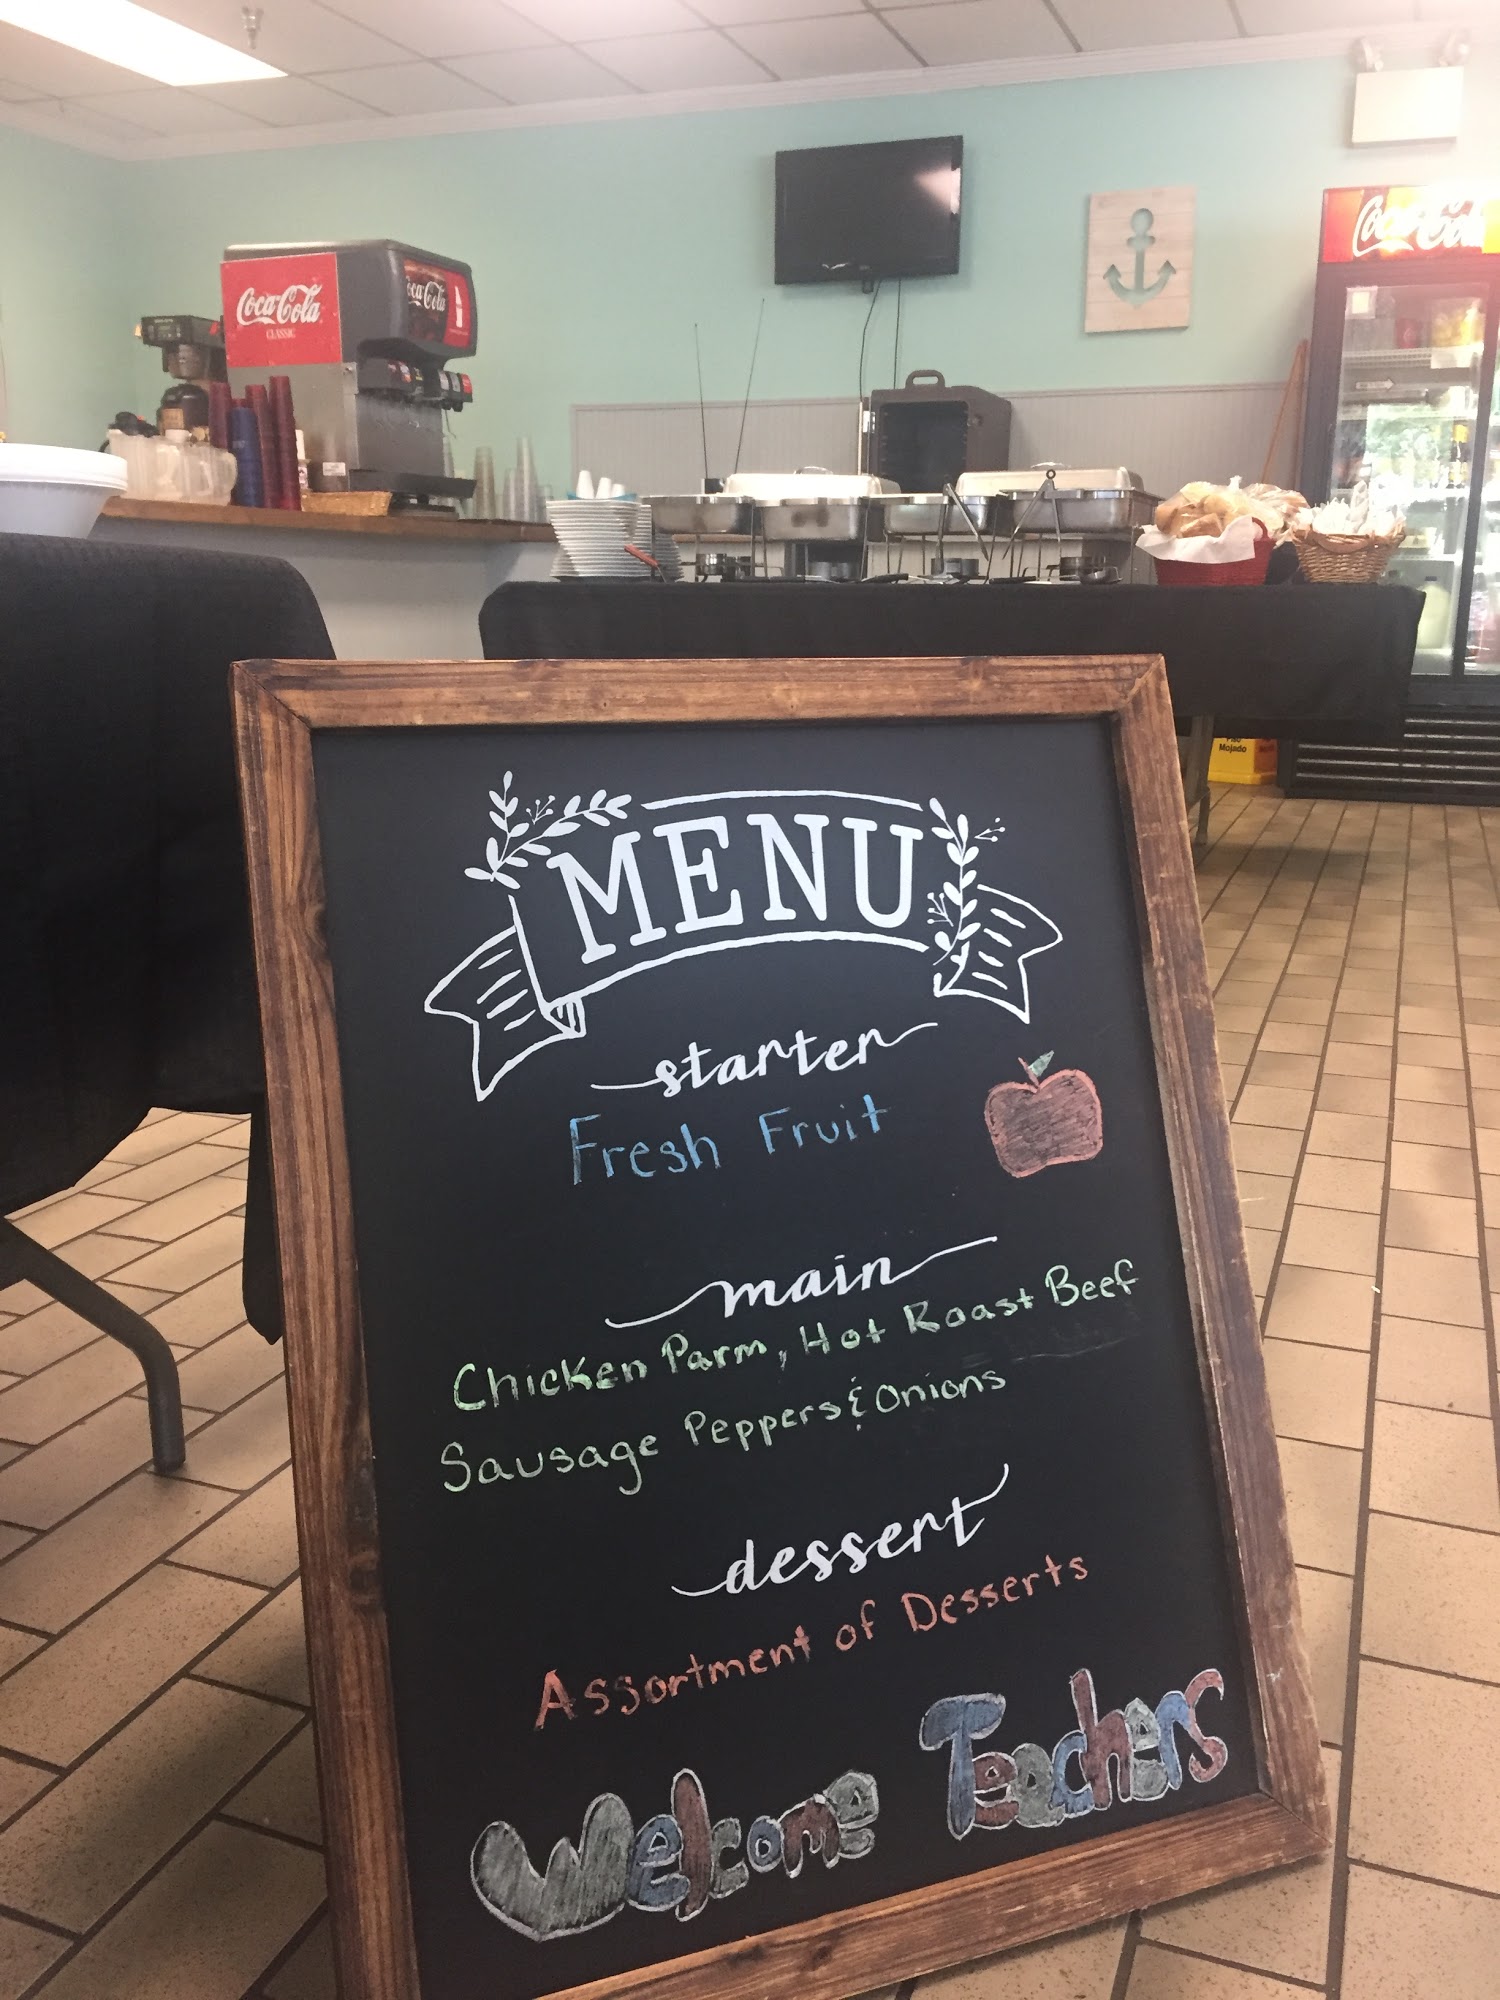 Coca-Cola
CLASSIC
Coca-Cola
Coca-Cola
Piso
Mojado
MENU
starter
Fresh Fruit
main
Chicken Parm, Hot Roast Beef
Sausage Peppers & Onions
dessert
Assortment of Desserts
Welcome Teachers